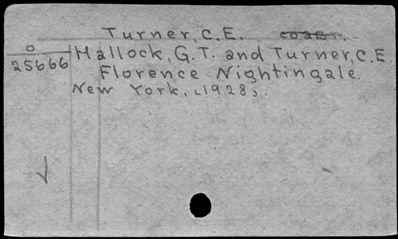 Turner, C.E.
o
25666
Hallock, G.T. and Turner, C.E
Florence Nightingale.
New York, c1928.